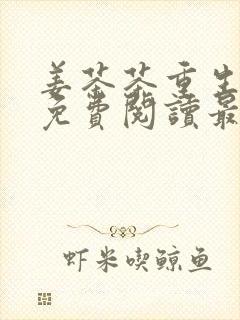 姜茶茶重生
免費閱讀最
虾米喫鲸鱼